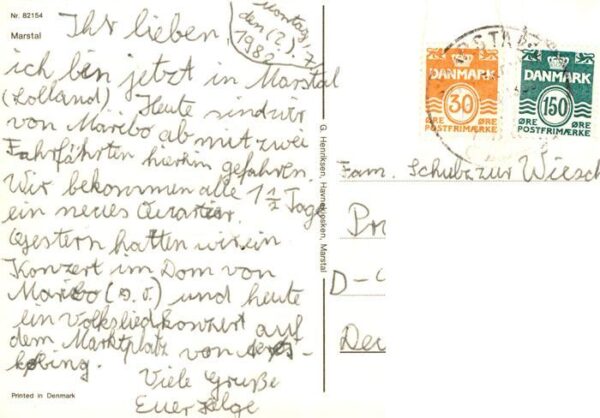 Nr. 82154
Marstal
Montag,
den (2.). 7.
1982
Ihr lieben,
ich bin jetzt in Marstal
(Lolland) Heute sind wir
von Maribo ab mit zwei
Fahrfährten hierhin gefahren.
Wir bekommen alle 1 1/2 Tage
ein neues Quartier.
Gestern hatten wir ein
Konzert im Dom von
Maribo (s. o.) und heute
ein Volksliedkonzert auf
dem Marktplatz von
købing.
Viele Grüße
Euer Helge
Printed in Denmark
G. Henriksen, Havnekiosken, Marstal
DANMARK
30
ØRE ØRE
POSTFRIMÆRKE
DANMARK
150
ØRE ØRE
POSTFRIMÆRKE
Fam. Schulz zur Wiesch
D-